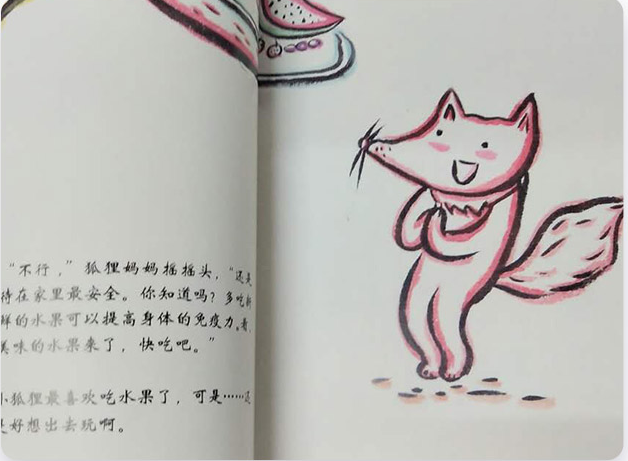 “不行，”狐狸妈妈摇摇头，“还是
待在家里最安全。你知道吗？多吃新
鲜的水果可以提高身体的免疫力。看，
美味的水果来了，快吃吧。”
小狐狸最喜欢吃水果了，可是……还
是好想出去玩啊。